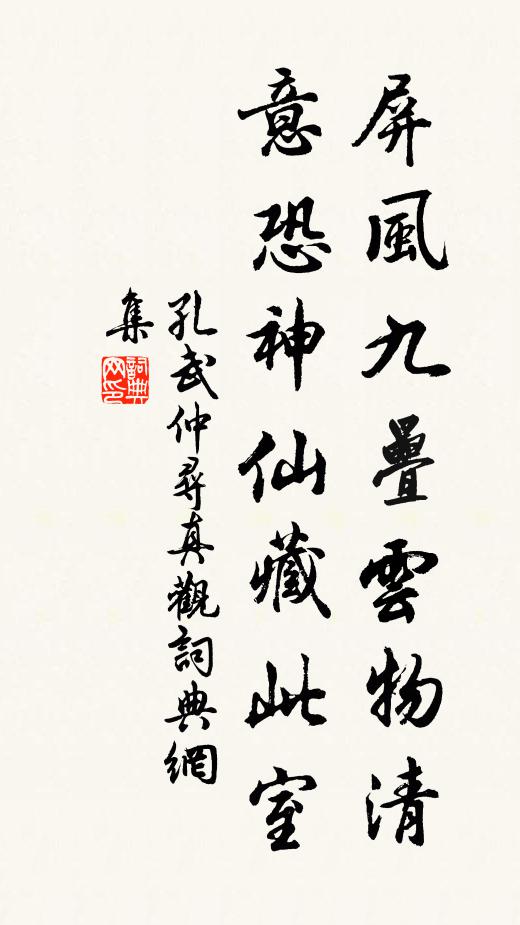 屏風九疊雲物清
意恐神仙藏此室
孔武仲尋真觀詞典網
集
詞典
网印